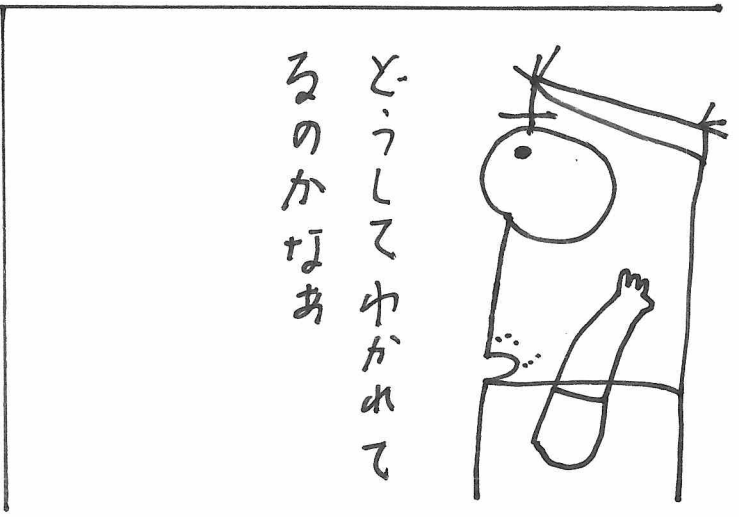 どうしてわかれて
るのかなあ